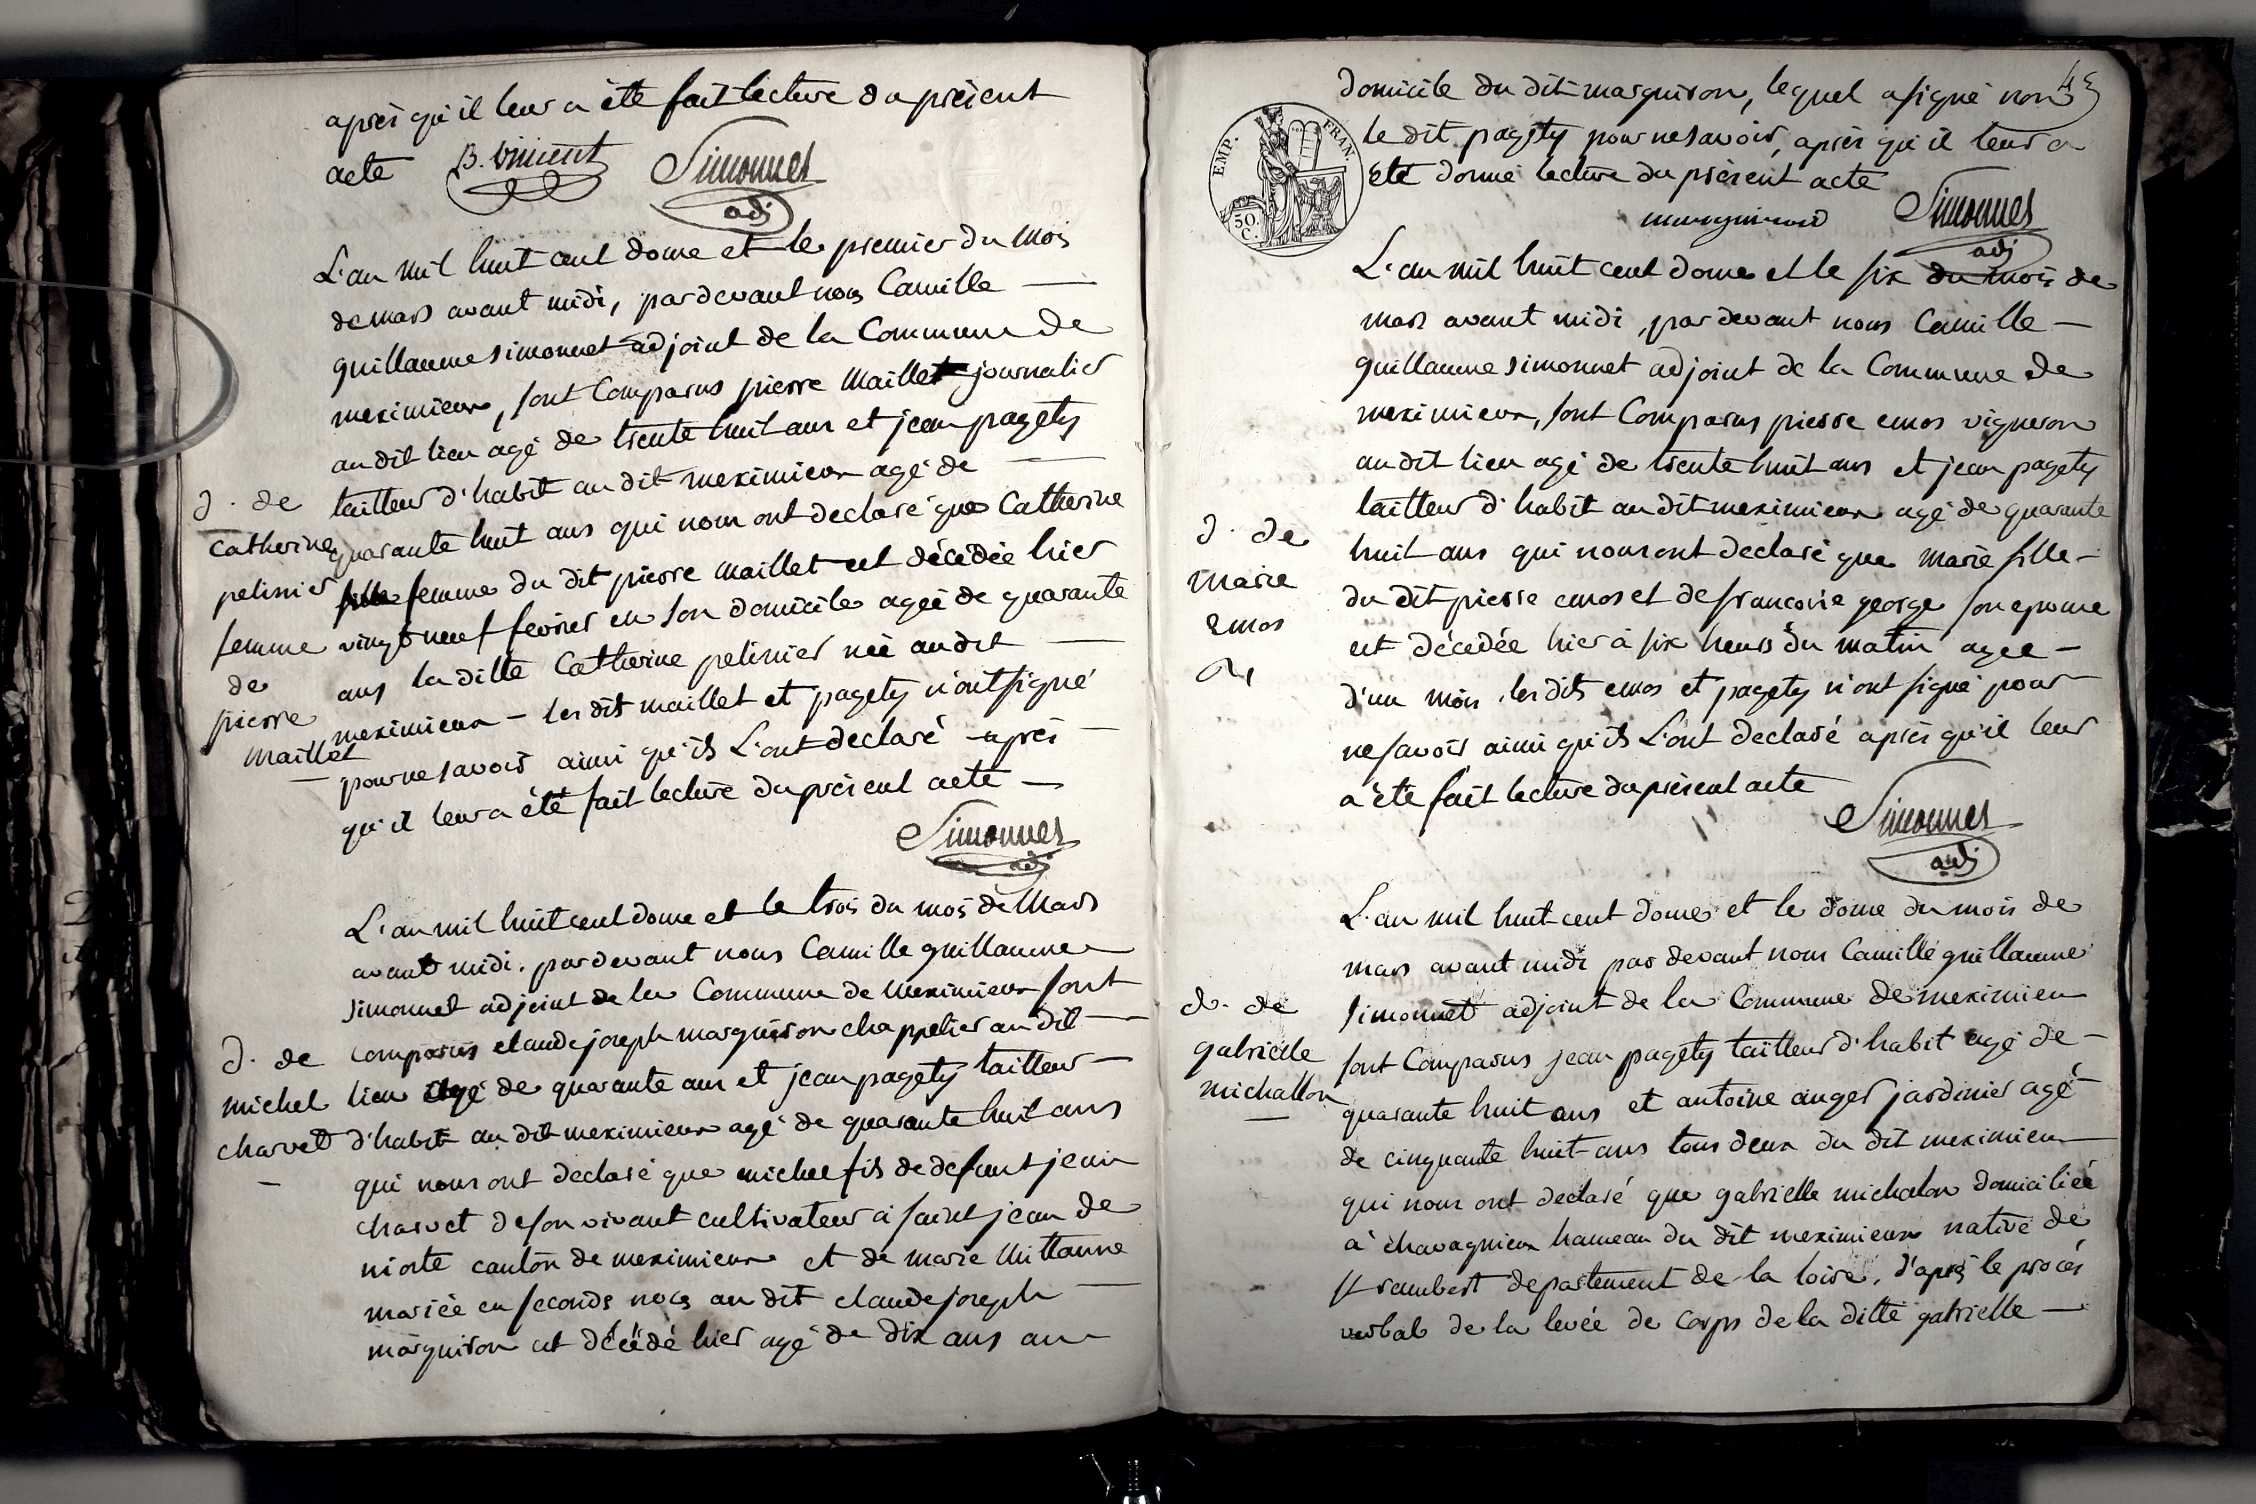 après qu'il leur a été fait lecture du présent
acte B. Vincent Simonnet
adj
L'an mil huit cent douze et le premier du mois
de mars avant midi, pardevant nous Camille
guillaume simonnet adjoint de la Commune de
meximieux, sont Comparus pierre Maillet journalier
au dit lieu agé de trente huit ans et jean pagety
tailleur d'habit au dit meximieux agé de
quarante huit ans qui nous ont declaré que Catherine
fille femme du dit pierre Maillet est décédée hier
vingt neuf février en son domicile agée de quarante
ans la ditte Catherine pelinier née au dit
meximieux – les dits maillet et pagety n'ont signé
pour ne savoir ainsi qu'ils L'ont declaré après
qu'il leur a été fait lecture du présent acte
Simonnet
adj
D. de
Catherine
pelinier
femme
de
pierre
Maillet
L'an mil huit cent douze et le trois du mois de Mars
avant midi. pardevant nous Camille guillaume
simonnet adjoint de la Commune de Meximieux sont
comparus claude joseph marguiron chappelier au dit
lieu agé de quarante ans et jean pagety tailleur
d'habit au dit meximieux agé de quarante huit ans
qui nous ont declaré que michel fils de defunt jean
charvet de son vivant cultivateur à saint jean de
niote canton de meximieux et de marie Mittanne
mariée en seconds noces au dit claude joseph
marguiron est décédé hier agé de dix ans au
D. de
michel
charvet
45
domicile du dit marguiron, lequel a signé non
le dit pagety pour ne savoir, après qu'il leur a
été donné lecture du présent acte
marguiron Simonnet
adj
EMP. FRAN.
50.
C.
L'an mil huit cent douze et le six du mois de
mars avant midi, pardevant nous Camille
guillaume simonnet adjoint de la Commune de
meximieux, sont Comparus pierre emos vigneron
au dit lieu agé de trente huit ans et jean pagety
tailleur d'habit au dit meximieux agé de quarante
huit ans qui nous ont declaré que marie fille
du dit pierre emos et de françoise george son epouse
est décédée hier à six heurs du matin agee
d'un mois. les dits emos et pagety n'ont signé pour
ne savoir ainsi qu'ils L'ont declaré après qu'il leur
a été fait lecture du présent acte
Simonnet
adj
D. de
marie
emos
L'an mil huit cent douze et le douze du mois de
mars avant midi par devant nous Camille guillaume
simonnet adjoint de la Commune de meximieu
sont Comparus jean pagety tailleur d'habit agé de
quarante huit ans et antoine anger jardinier agé
de cinquante huit ans tous deux du dit meximieu
qui nous ont declaré que gabrielle michalon domiciliée
à chavagnieux hameau du dit meximieux native de
st rambert departement de la loire, d'après le procès
verbal de la levée de corps de la ditte gabrielle
d. de
gabrielle
michallon